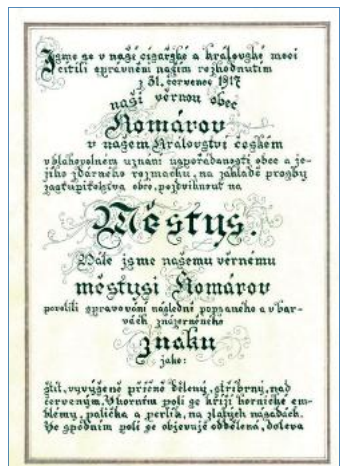 Jsme se v naší císařské a královské moci
cítili oprávněni naším rozhodnutím
z 31. červenec 1917
naši věrnou obec
Komárov
v našem Království českém
v blahovolném uznání uspořádanosti obce a je-
jího zdárného rozmachu, na základě prosby
zastupitelstva obce, pozdvihnout na
Městys.
Dále jsme našemu věrnému
městysi Komárov
povolili spravování následně popsaného a v bar-
vách znázorněného
znaku
jako:
štít, vyvýšeně příčně dělený, stříbrný, nad
červeným. V horním poli se kříží hornické em-
blémy, palička a perlík, na zlatých násadách.
Ve spodním poli se objevuje oddělená, doleva